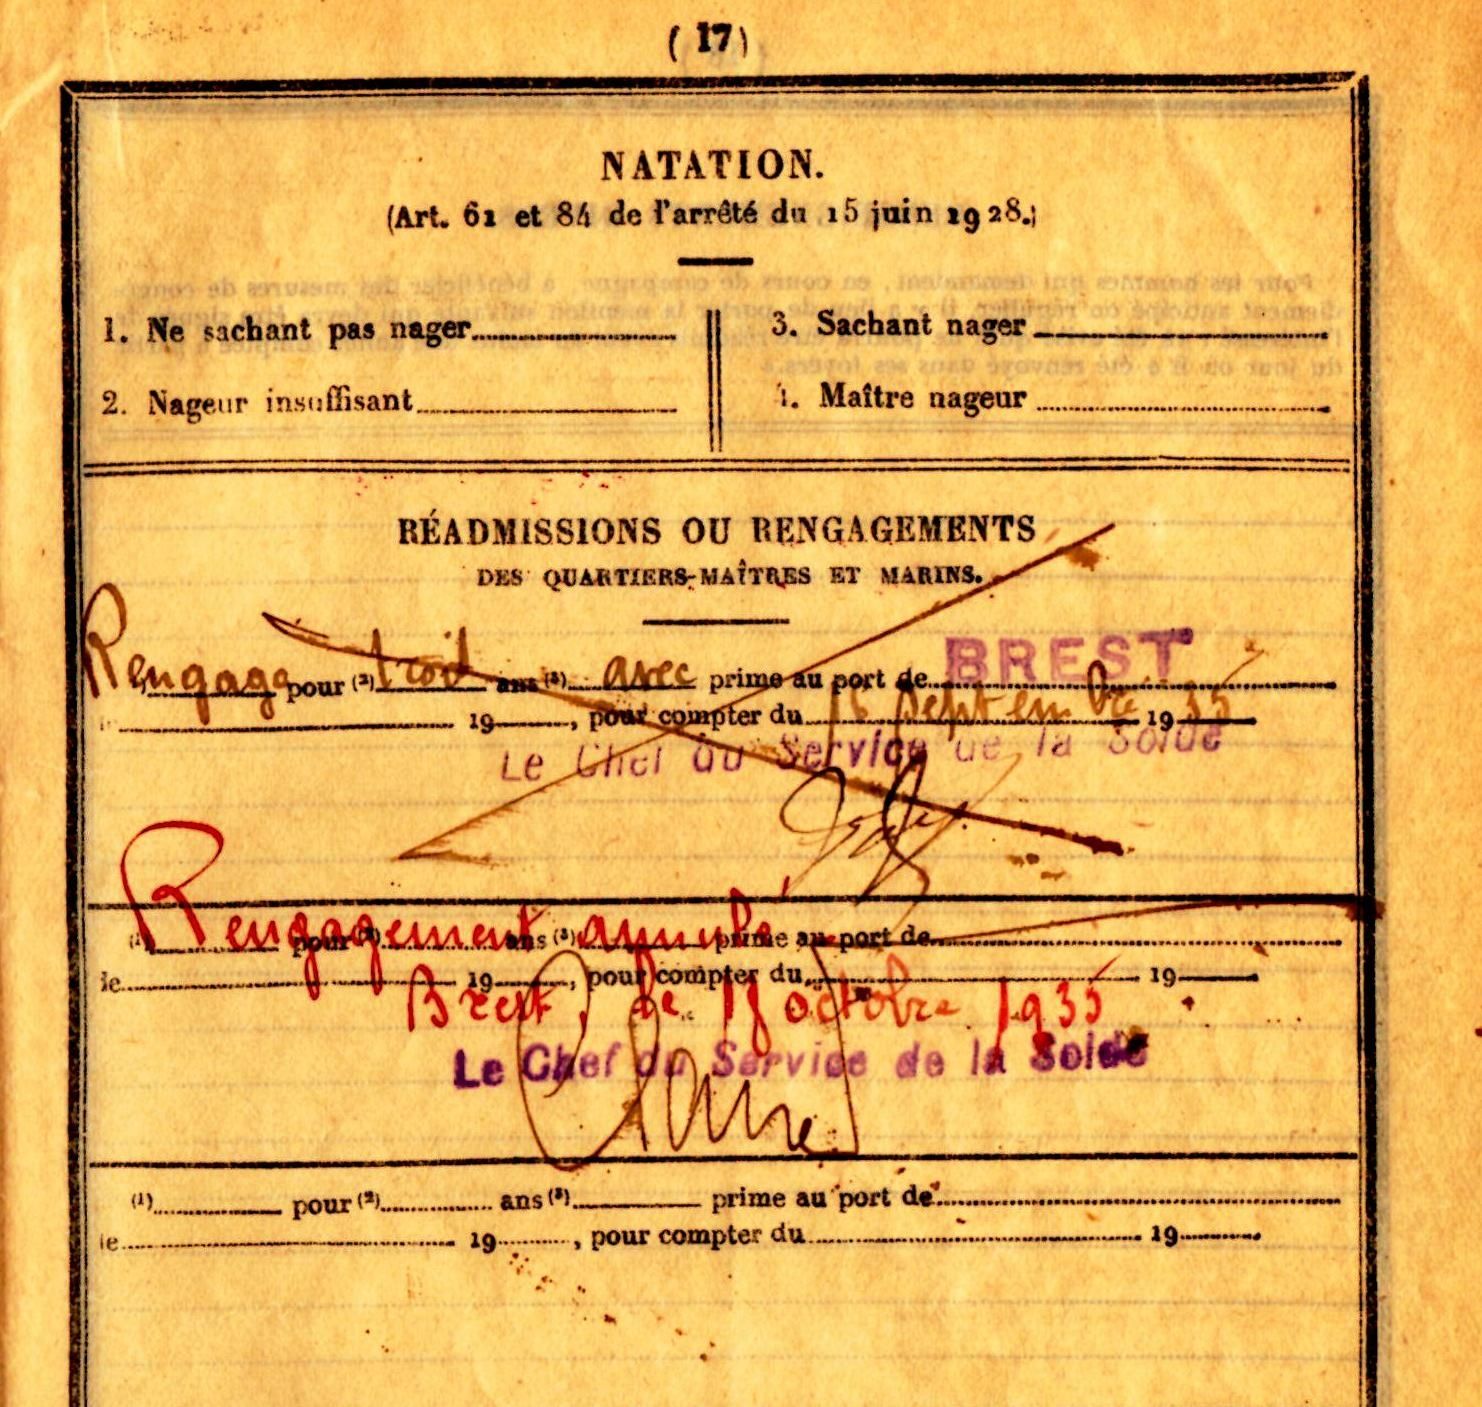 (17)
NATATION.
(Art. 61 et 84 de l'arrêté du 15 juin 1928.)
1. Ne sachant pas nager
3. Sachant nager
2. Nageur insuffisant
4. Maître nageur
RÉADMISSIONS OU RENGAGEMENTS
DES QUARTIERS-MAÎTRES ET MARINS.
Rengagé pour (2) trois ans (3) avec prime au port de BREST
le 19 , pour compter du 16 septembre 1935
Le Chef du Service de la Solde
Rengagement annulé
(1) pour (2) ans (3) prime au port de
le 19 , pour compter du 19
Brest, le 18 octobre 1935
Le Chef du Service de la Solde
(1) pour (2) ans (3) prime au port de
le 19 , pour compter du 19